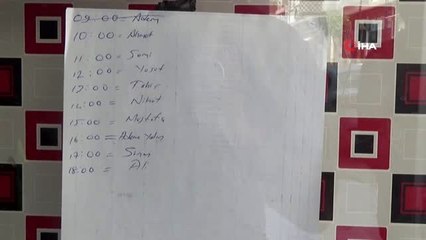 09:00 = Adem
10:00 = Ahmet
11:00 = Sami
12:00 = Yusuf
13:00 = Tahir
14:00 = Nihat
15:00 = Mustafa
16:00 = Adem
17:00 = Sinan
18:00 = Ali
İHA